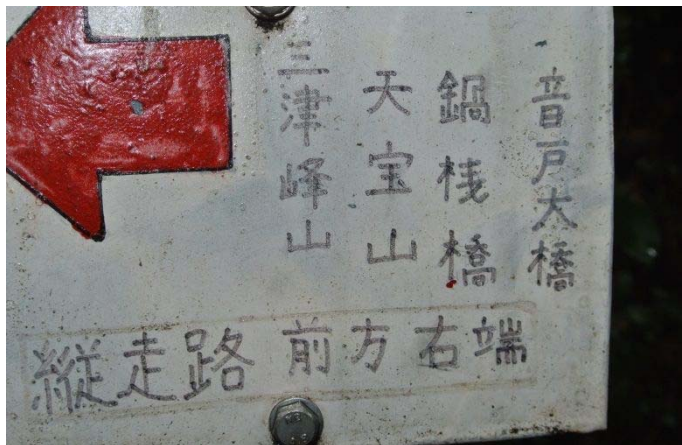 音戸大橋
鍋桟橋
天宝山
三津峰山
縦走路 前方右端